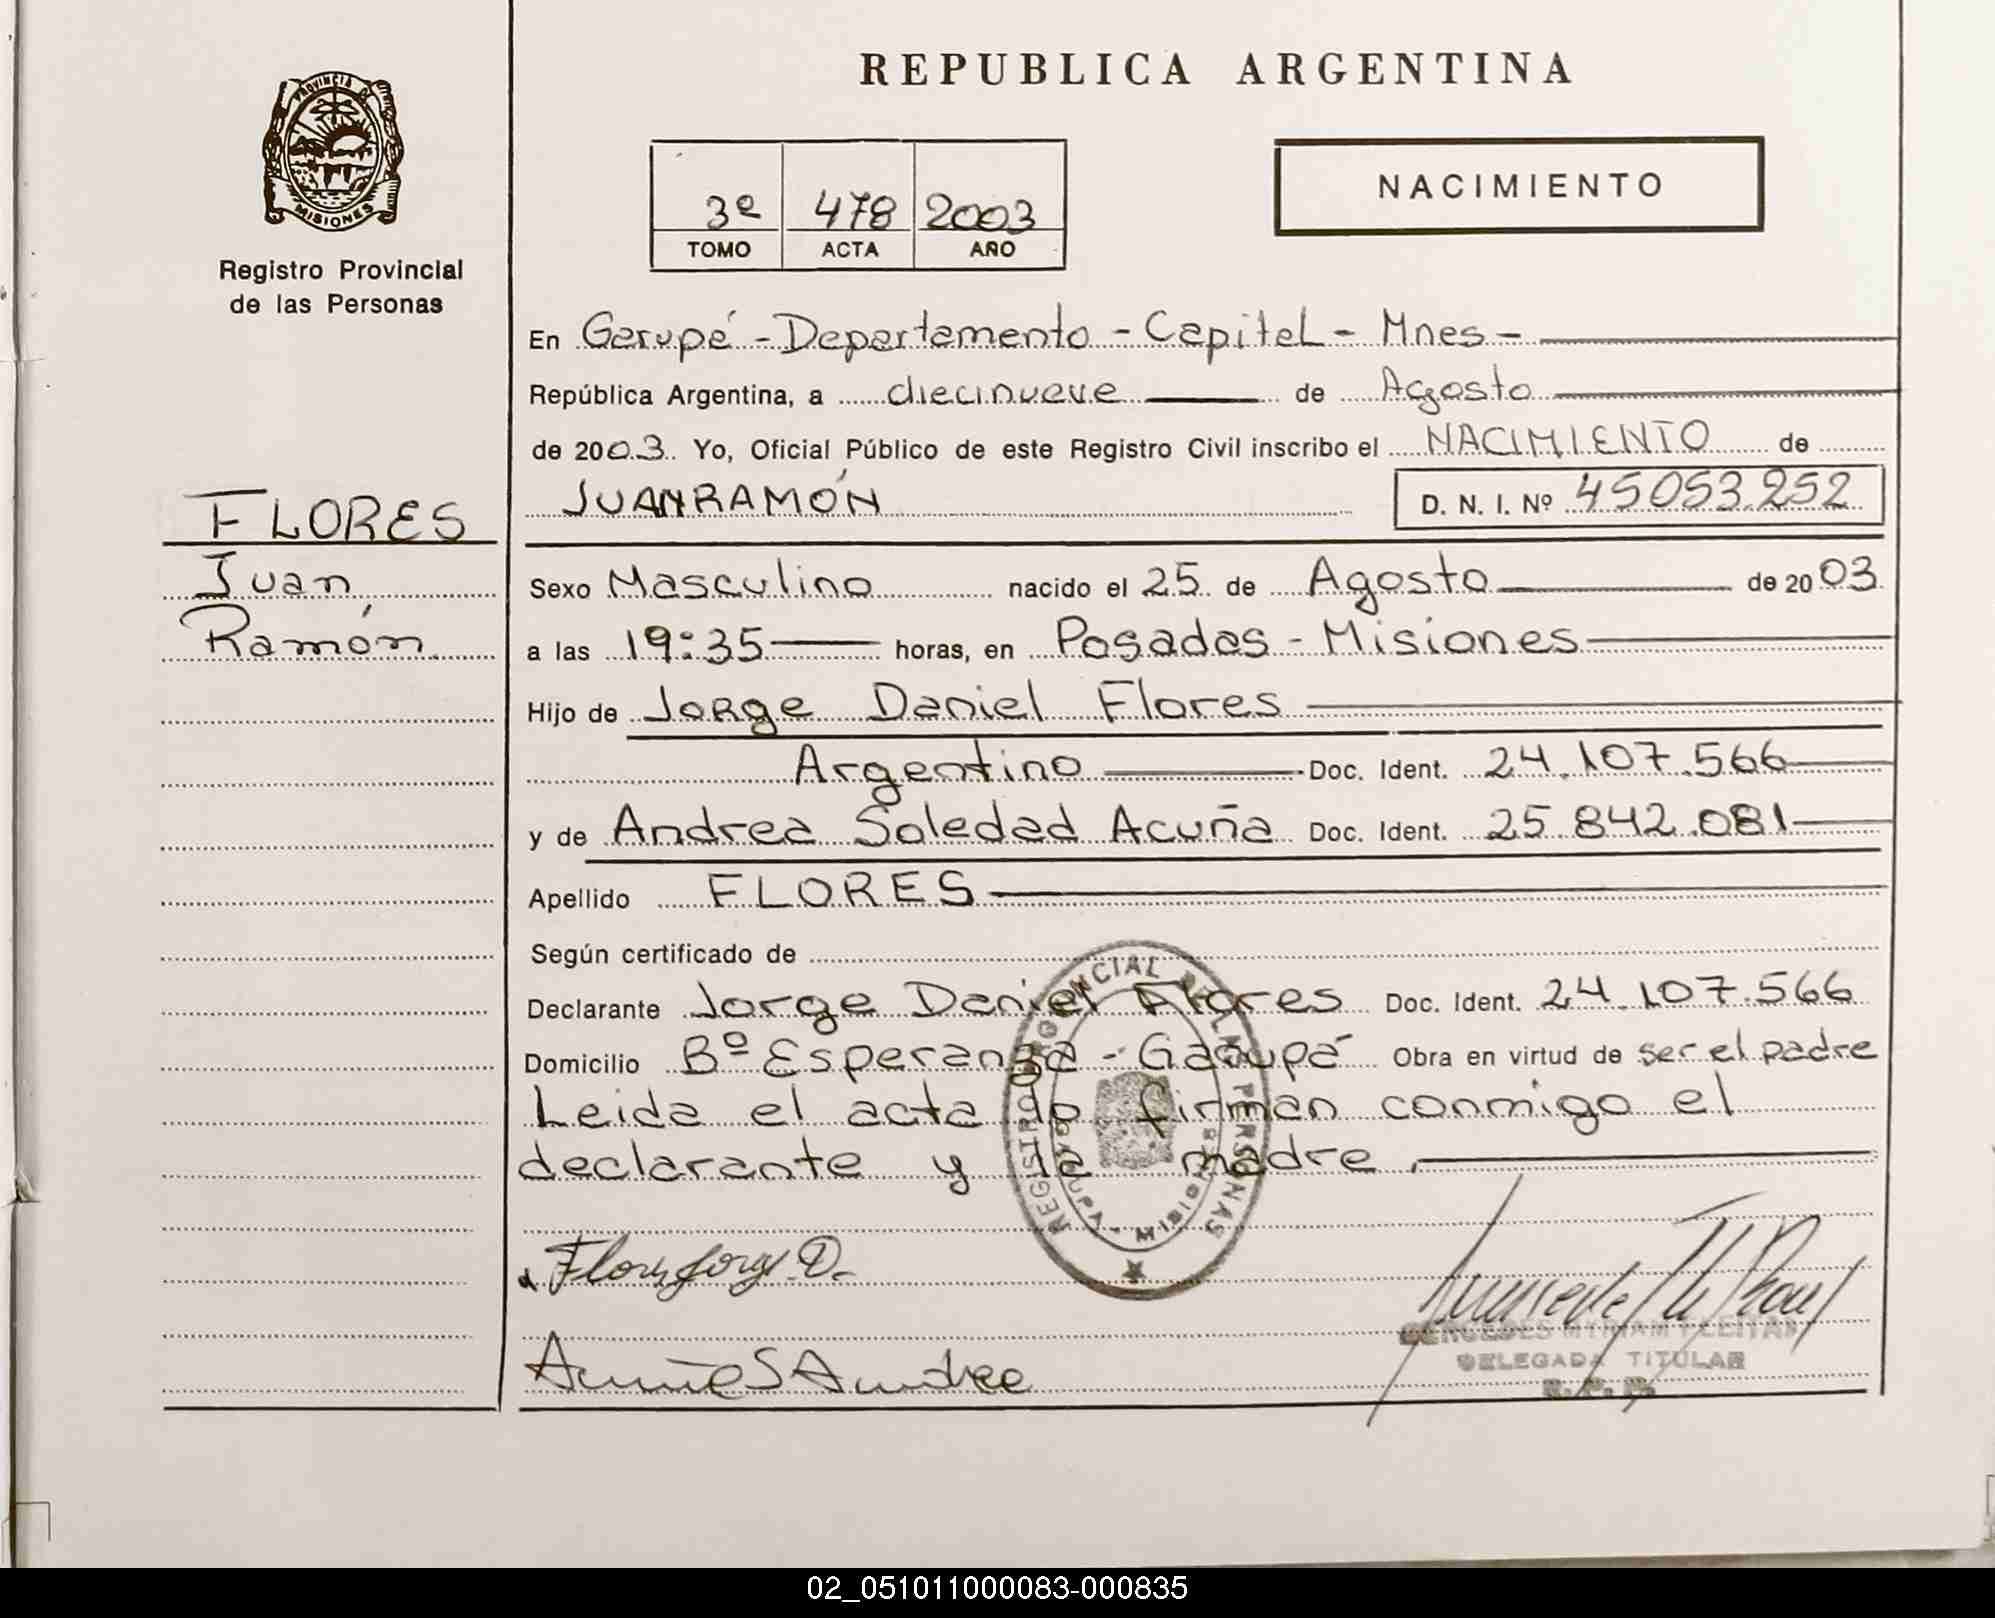 REPUBLICA ARGENTINA
PROVINCIA DE
MISIONES
Registro Provincial
de las Personas
3º 478 2003
TOMO ACTA AÑO
NACIMIENTO
En Garupá - Departamento - Capital - Mnes -
República Argentina, a diecinueve de Agosto
de 2003. Yo, Oficial Público de este Registro Civil inscribo el NACIMIENTO de
JUAN RAMÓN D. N. I. Nº 45053.252
FLORES
Juan
Ramón
Sexo Masculino nacido el 25 de Agosto de 2003
a las 19:35 horas, en Posadas - Misiones
Hijo de Jorge Daniel Flores
Argentino Doc. Ident. 24.107.566
y de Andrea Soledad Acuña Doc. Ident. 25.842.081
Apellido FLORES
Según certificado de
Declarante Jorge Daniel Flores Doc. Ident. 24.107.566
Domicilio Bº Esperanza - Garupá Obra en virtud de ser el padre
Leida el acta lo firman conmigo el
declarante y la madre.
REGISTRO PROVINCIAL DE LAS PERSONAS
GARUPA - MISIONES
Flores Jorge D.
Acuña S Andrea
MERCEDES MYRIAM FLEITAS
DELEGADA TITULAR
R. P. P.
02_051011000083-000835